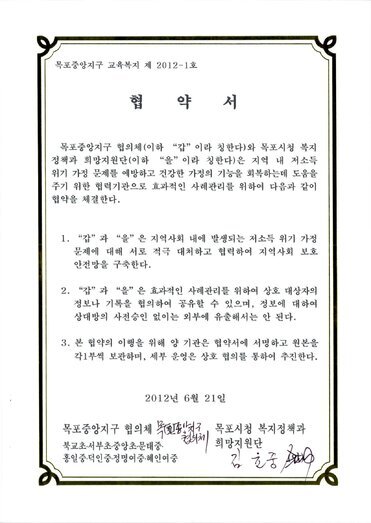 목포중앙지구 교육복지 제 2012-1호
협 약 서
목포중앙지구 협의체(이하 “갑”이라 칭한다)와 목포시청 복지
정책과 희망지원단(이하 “을”이라 칭한다)은 지역 내 저소득
위기 가정 문제를 예방하고 건강한 가정의 기능을 회복하는데 도움을
주기 위한 협력기관으로 효과적인 사례관리를 위하여 다음과 같이
협약을 체결한다.
1. “갑”과 “을”은 지역사회 내에 발생되는 저소득 위기 가정
문제에 대해 서로 적극 대처하고 협력하여 지역사회 보호
안전망을 구축한다.
2. “갑”과 “을”은 효과적인 사례관리를 위하여 상호 대상자의
정보나 기록을 협의하여 공유할 수 있으며, 정보에 대하여
상대방의 사전승인 없이는 외부에 유출해서는 안 된다.
3. 본 협약의 이행을 위해 양 기관은 협약서에 서명하고 원본을
각1부씩 보관하며, 세부 운영은 상호 협의를 통하여 추진한다.
2012년 6월 21일
목포중앙지구 협의체 목포중앙지구 협의체 목포시청 복지정책과
북교초서부초중앙초문태중 희망지원단
홍일중덕인중정명여중혜인여중 김 호 중